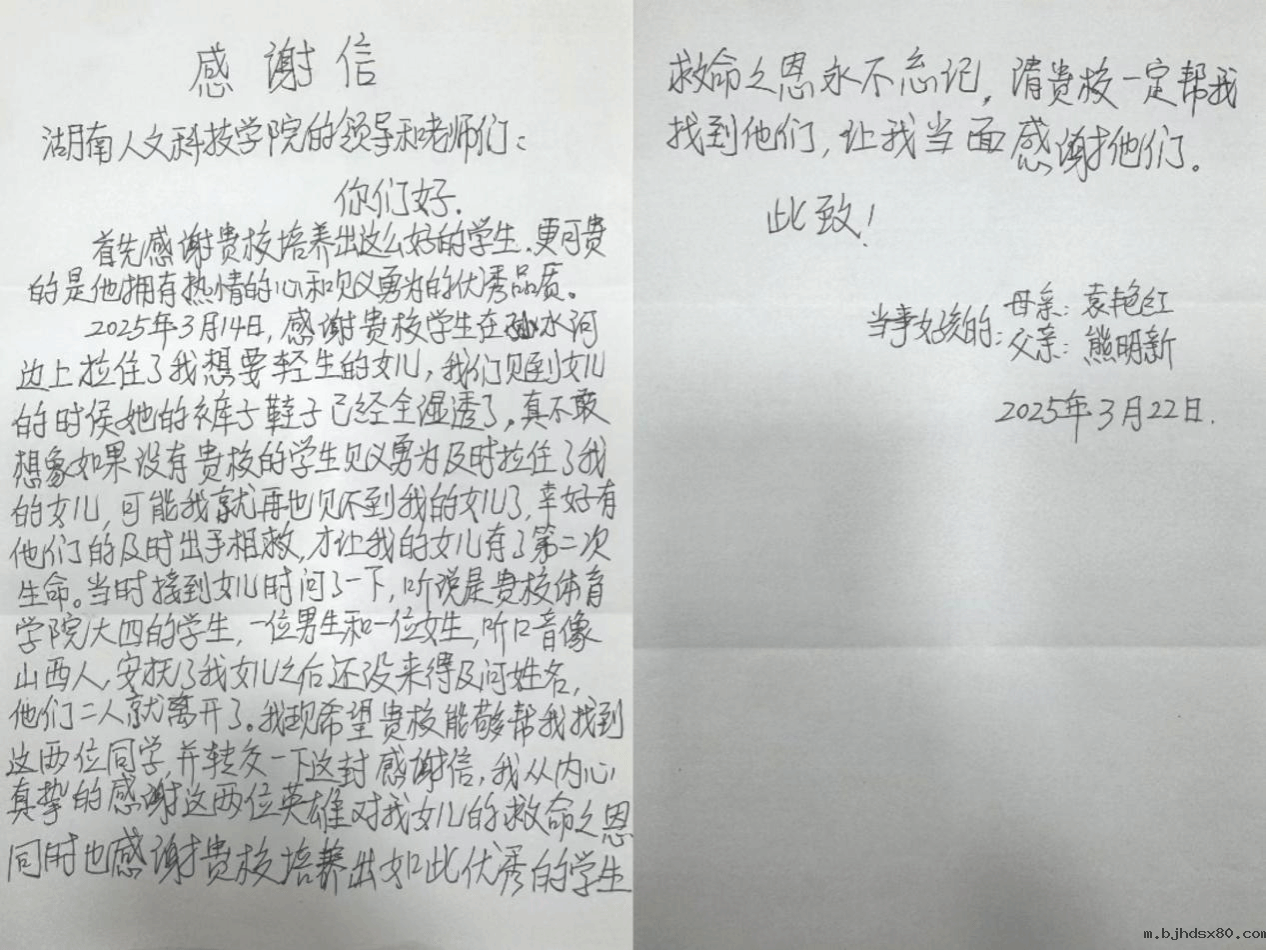 感谢信
湖南人文科技学院的领导和老师们：
你们好.
首先感谢贵校培养出这么好的学生.更可贵
的是他拥有热情的心和见义勇为的优秀品质。
2025年3月14日,感谢贵校学生在孙水河
边上拉住了我想要轻生的女儿,我们见到女儿
的时侯她的裤子鞋子已经全湿透了,真不敢
想象如果没有贵校的学生见义勇为及时拉住了我
的女儿,可能我就再也见不到我的女儿了,幸好有
他们的及时出手相救,才让我的女儿有了第二次
生命。当时接到女儿时问了一下,听说是贵校体育
学院大四的学生,一位男生和一位女生,听口音像
山西人,安抚了我女儿之后还没来得及问姓名,
他们二人就离开了。我现希望贵校能够帮我找到
这两位同学,并转交一下这封感谢信,我从内心
真挚的感谢这两位英雄对我女儿的救命之恩
同时也感谢贵校培养出如此优秀的学生
救命之恩永不忘记,请贵校一定帮我
找到他们,让我当面感谢他们。
此致!
当事女孩的:母亲:袁艳红
父亲:熊明新
2025年3月22日.
m.bjhdsx80.com